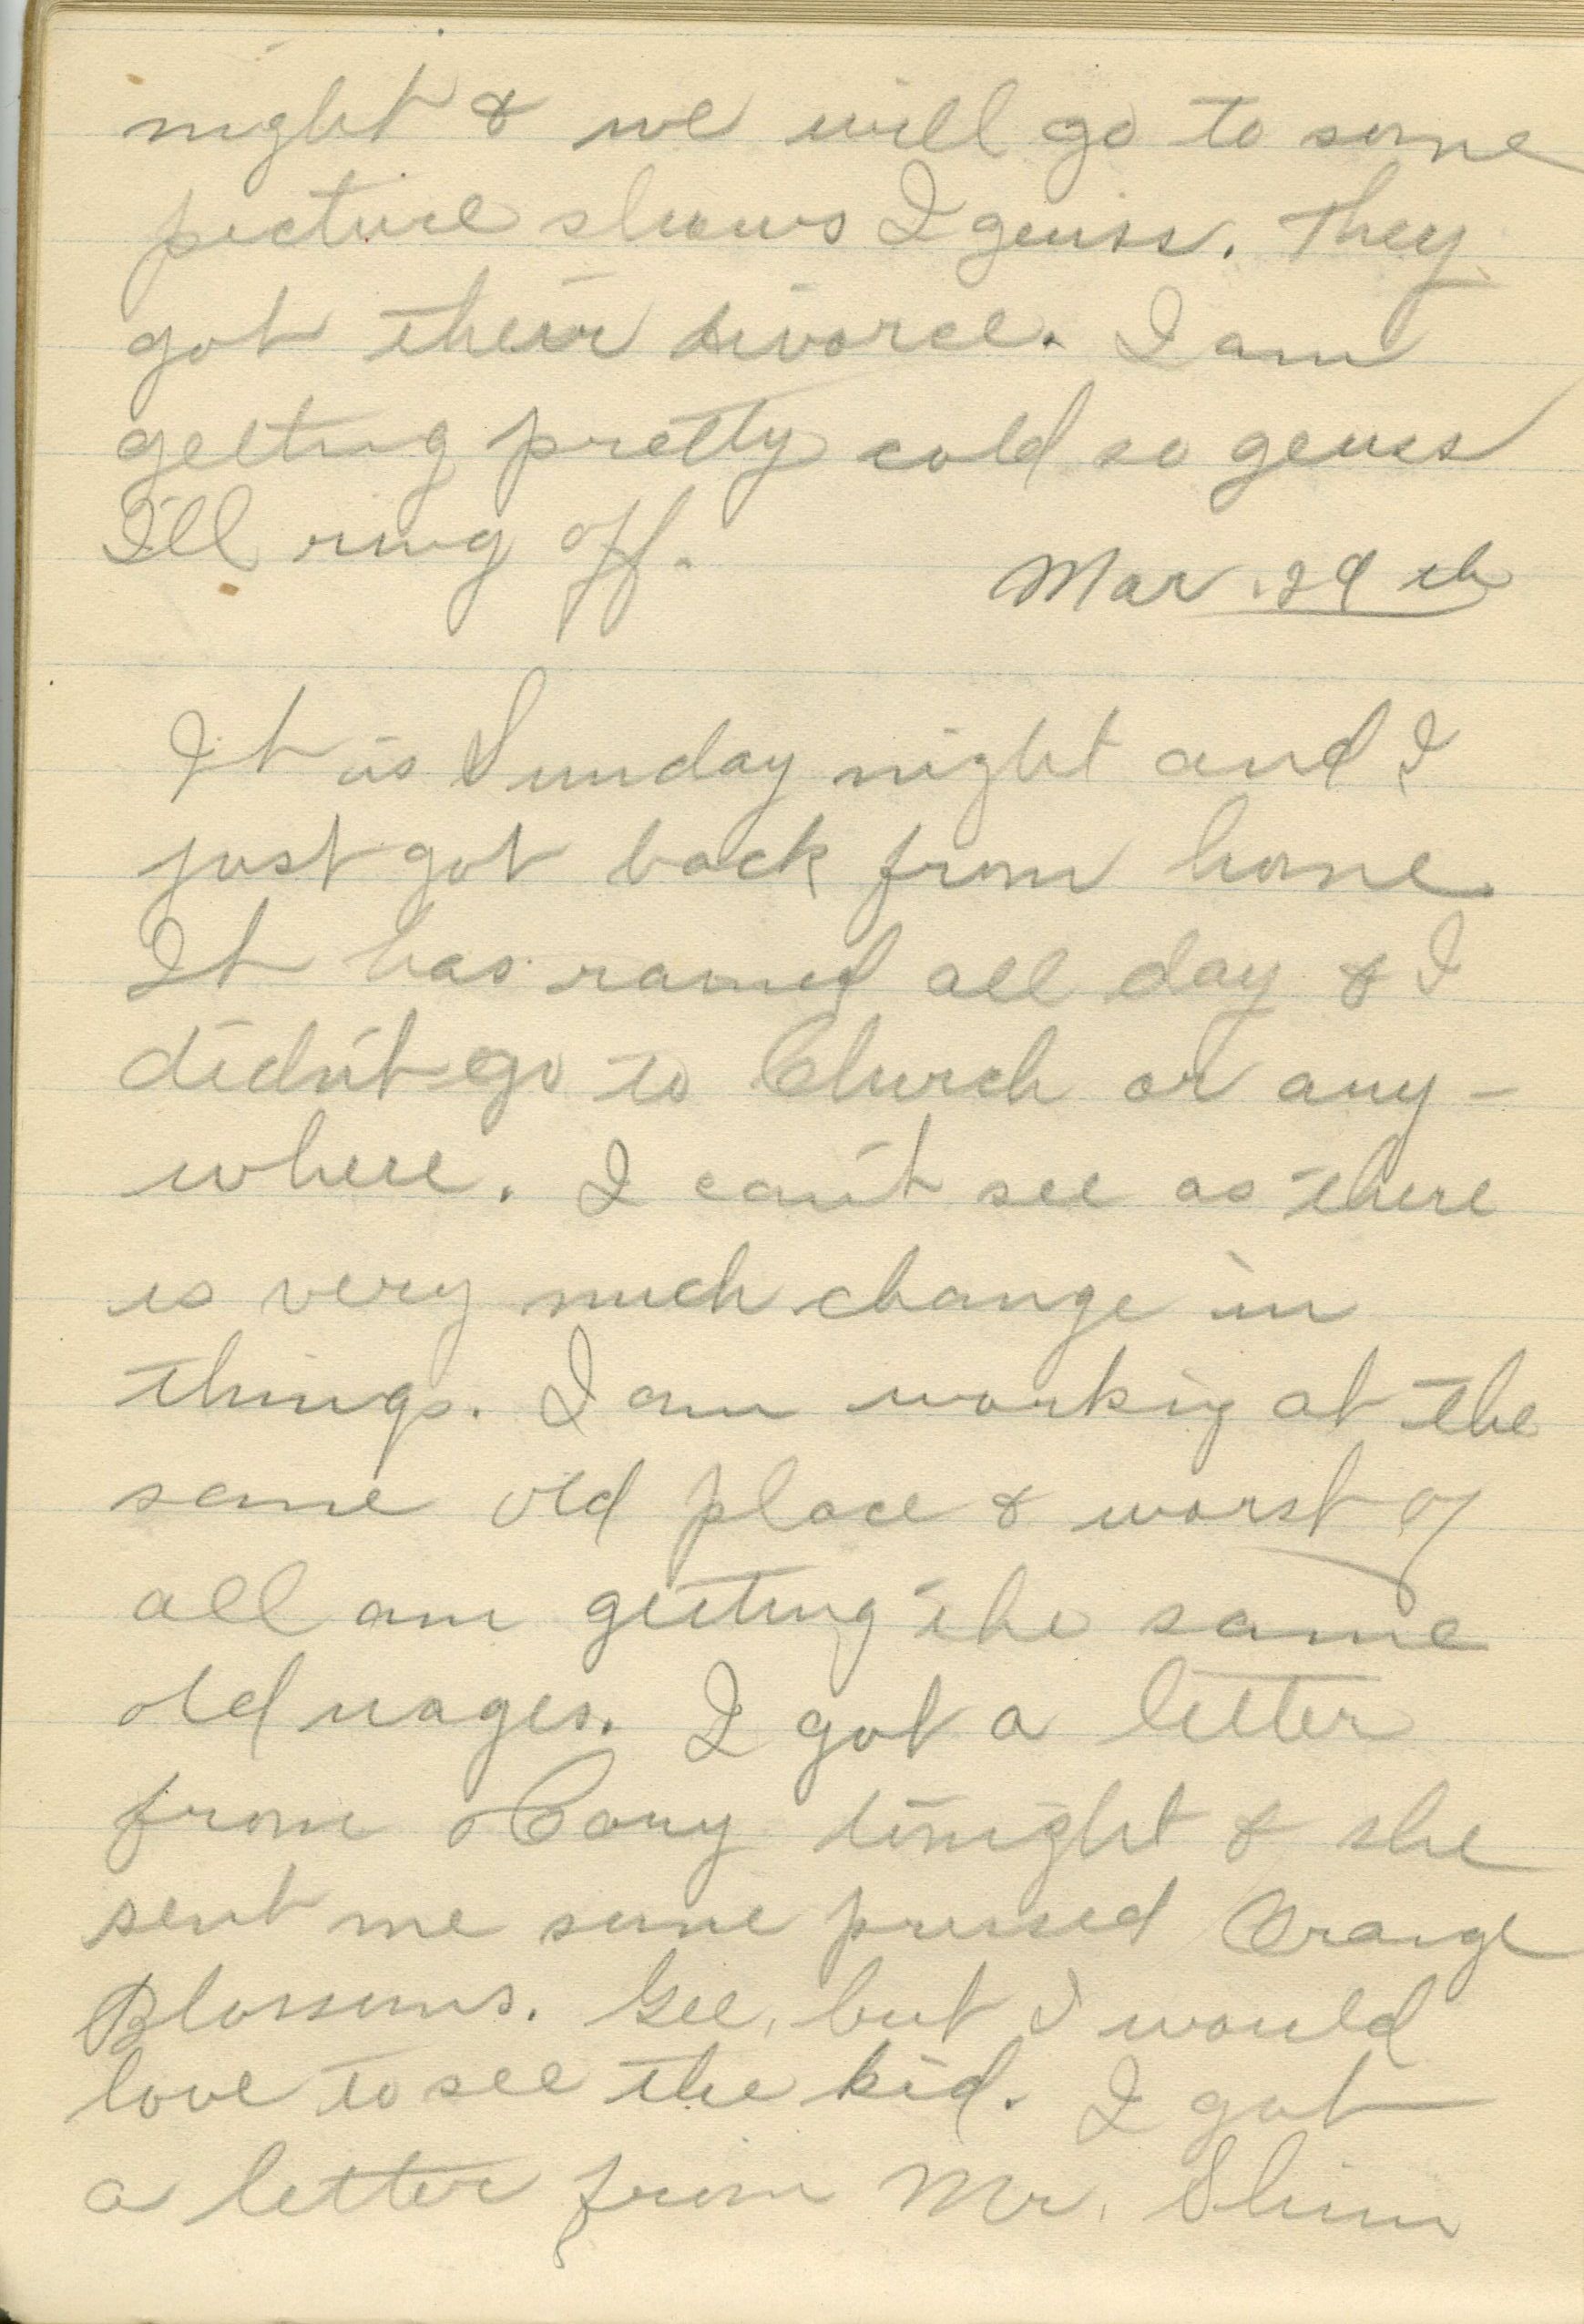 night & we will go to some
picture shows I geuiss. They
got their divorce. I am
getting pretty cold so geuss
I'll ring off.
Mar. 29th
It is Sunday night and I
just got back from home.
It has rained all day & I
didn't go to Church or any-
where. I can't see as there
is very much change in
things. I am working at the
same old place & worst of
all am getting the same
old wages. I got a letter
from tonight & she
sent me some pressed Orange
Blossoms. Gee, but I would
love to see the kid. I got
a letter from Mr.